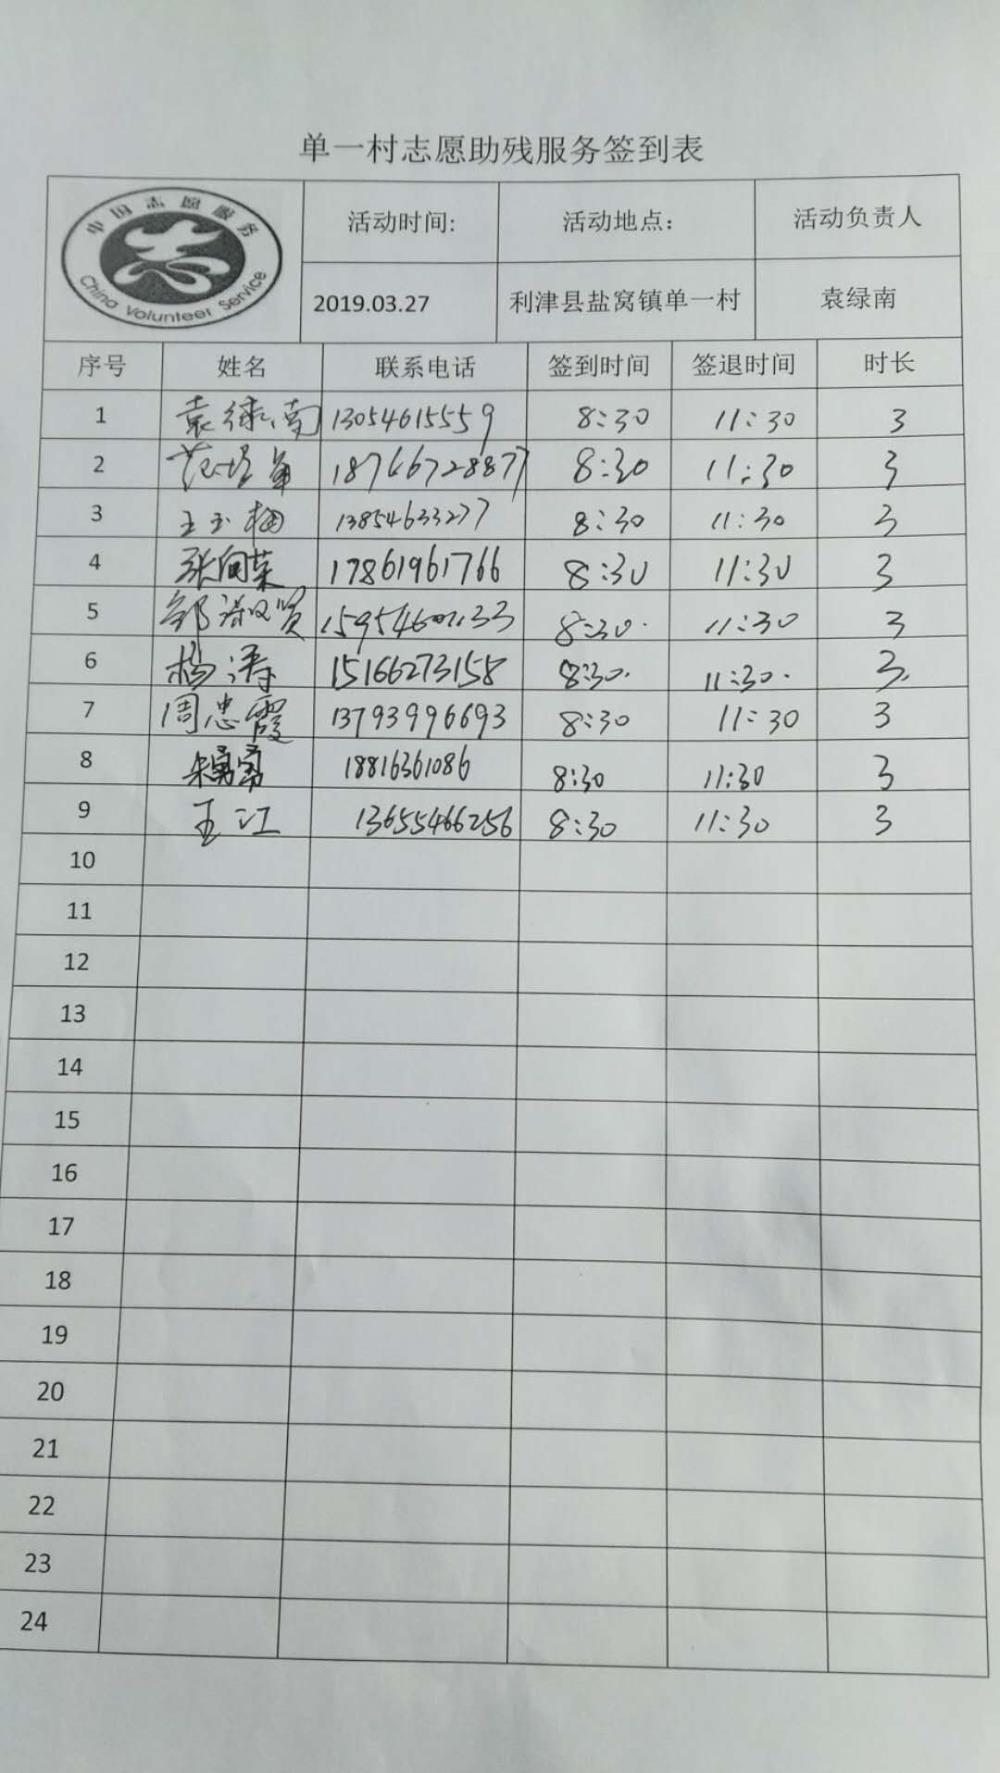 单一村志愿助残服务签到表
中国志愿服务
China Volunteer Service
活动时间: 活动地点: 活动负责人
2019.03.27 利津县盐窝镇单一村 袁绿南
序号 姓名 联系电话 签到时间 签退时间 时长
1 袁绿南 13054615559 8:30 11:30 3
2 18746728877 8:30 11:30 3
3 王玉梅 13854633277 8:30 11:30 3
4 张向荣 17861961766 8:30 11:30 3
5 8:30 11:30 3
6 杨涛 15166273158 8:30 11:30 3
7 周忠霞 13793996693 8:30 11:30 3
8 18816361086 8:30 11:30 3
9 王江 13655466256 8:30 11:30 3
10
11
12
13
14
15
16
17
18
19
20
21
22
23
24